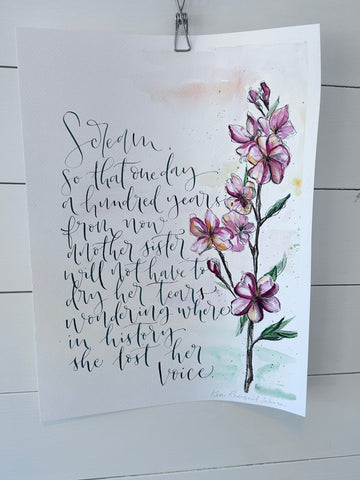 Scream.
So that one day
a hundred years
from now
another sister
will not have to
dry her tears
wondering where
in history
she lost her
voice.